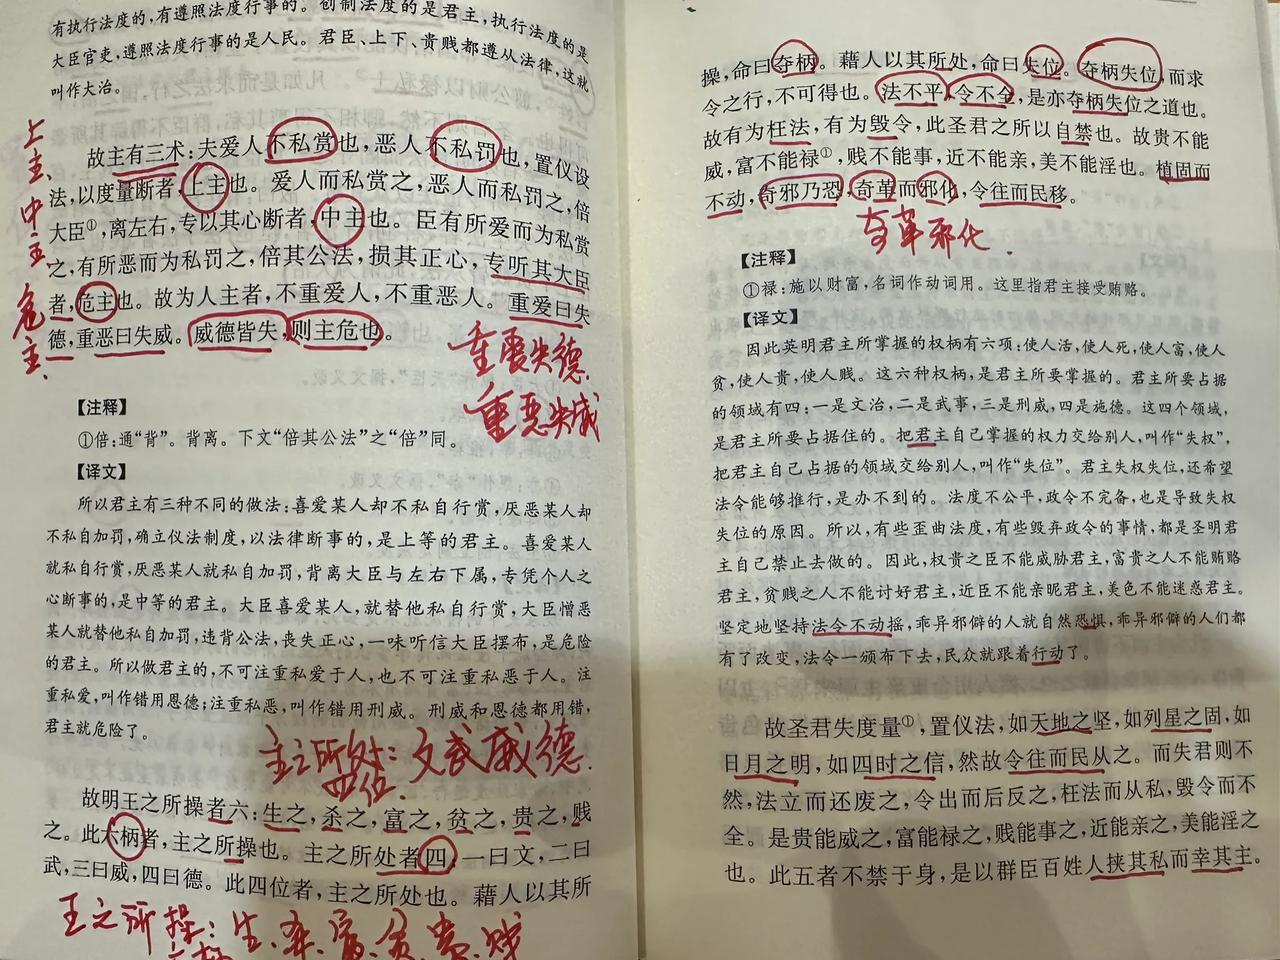 有执行法度的，有遵照法度行事的。创制法度的是君主，执行法度的是
大臣官吏，遵照法度行事的是人民。君臣、上下、贵贱都遵从法律，这就
叫作大治。
故主有三术：夫爱人不私赏也，恶人不私罚也，置仪设
法，以度量断者，上主也。爱人而私赏之，恶人而私罚之，倍
大臣①，离左右，专以其心断者，中主也。臣有所爱而为私赏
之，有所恶而为私罚之，倍其公法，损其正心，专听其大臣
者，危主也。故为人主者，不重爱人，不重恶人。重爱曰失
德，重恶曰失威。威德皆失，则主危也。
上主、
中主
危主、
重爱失德、
重恶失威
【注释】
①倍：通“背”。背离。下文“倍其公法”之“倍”同。
【译文】
所以君主有三种不同的做法：喜爱某人却不私自行赏，厌恶某人却
不私自加罚，确立仪法制度，以法律断事的，是上等的君主。喜爱某人
就私自行赏，厌恶某人就私自加罚，背离大臣与左右下属，专凭个人之
心断事的，是中等的君主。大臣喜爱某人，就替他私自行赏，大臣憎恶
某人就替他私自加罚，违背公法，丧失正心，一味听信大臣摆布，是危险
的君主。所以做君主的，不可注重私爱于人，也不可注重私恶于人。注
重私爱，叫作错用恩德；注重私恶，叫作错用刑威。刑威和恩德都用错，
君主就危险了。
主之所处：文武威德.
四位
故明王之所操者六：生之，杀之，富之，贫之，贵之，贱
之。此六柄者，主之所操也。主之所处者四：一曰文，二曰
武，三曰威，四曰德。此四位者，主之所处也。藉人以其所
主之所操：生、杀、富、贫、贵、贱
六柄
操，命曰夺柄。藉人以其所处，命曰失位。夺柄失位，而求
令之行，不可得也。法不平，令不全，是亦夺柄失位之道也。
故有为枉法，有为毁令，此圣君之所以自禁也。故贵不能
威，富不能禄①，贱不能事，近不能亲，美不能淫也。植固而
不动，奇邪乃恐，奇革而邪化，令往而民移。
奇革邪化.
【注释】
①禄：施以财富，名词作动词用。这里指君主接受贿赂。
【译文】
因此英明君主所掌握的权柄有六项：使人活，使人死，使人富，使人
贫，使人贵，使人贱。这六种权柄，是君主所要掌握的。君主所要占据
的领域有四：一是文治，二是武事，三是刑威，四是施德。这四个领域，
是君主所要占据住的。把君主自己掌握的权力交给别人，叫作“失权”，
把君主自己占据的领域交给别人，叫作“失位”。君主失权失位，还希望
法令能够推行，是办不到的。法度不公平，政令不完备，也是导致失权
失位的原因。所以，有些歪曲法度，有些毁弃政令的事情，都是圣明君
主自己禁止去做的。因此，权贵之臣不能威胁君主，富贵之人不能贿赂
君主，贫贱之人不能讨好君主，近臣不能亲昵君主，美色不能迷惑君主。
坚定地坚持法令不动摇，乖异邪僻的人就自然恐惧，乖异邪僻的人们都
有了改变，法令一颁布下去，民众就跟着行动了。
故圣君失度量①，置仪法，如天地之坚，如列星之固，如
日月之明，如四时之信，然故令往而民从之。而失君则不
然，法立而还废之，令出而后反之，枉法而从私，毁令而不
全。是贵能威之，富能禄之，贱能事之，近能亲之，美能淫之
也。此五者不禁于身，是以群臣百姓人挟其私而幸其主。